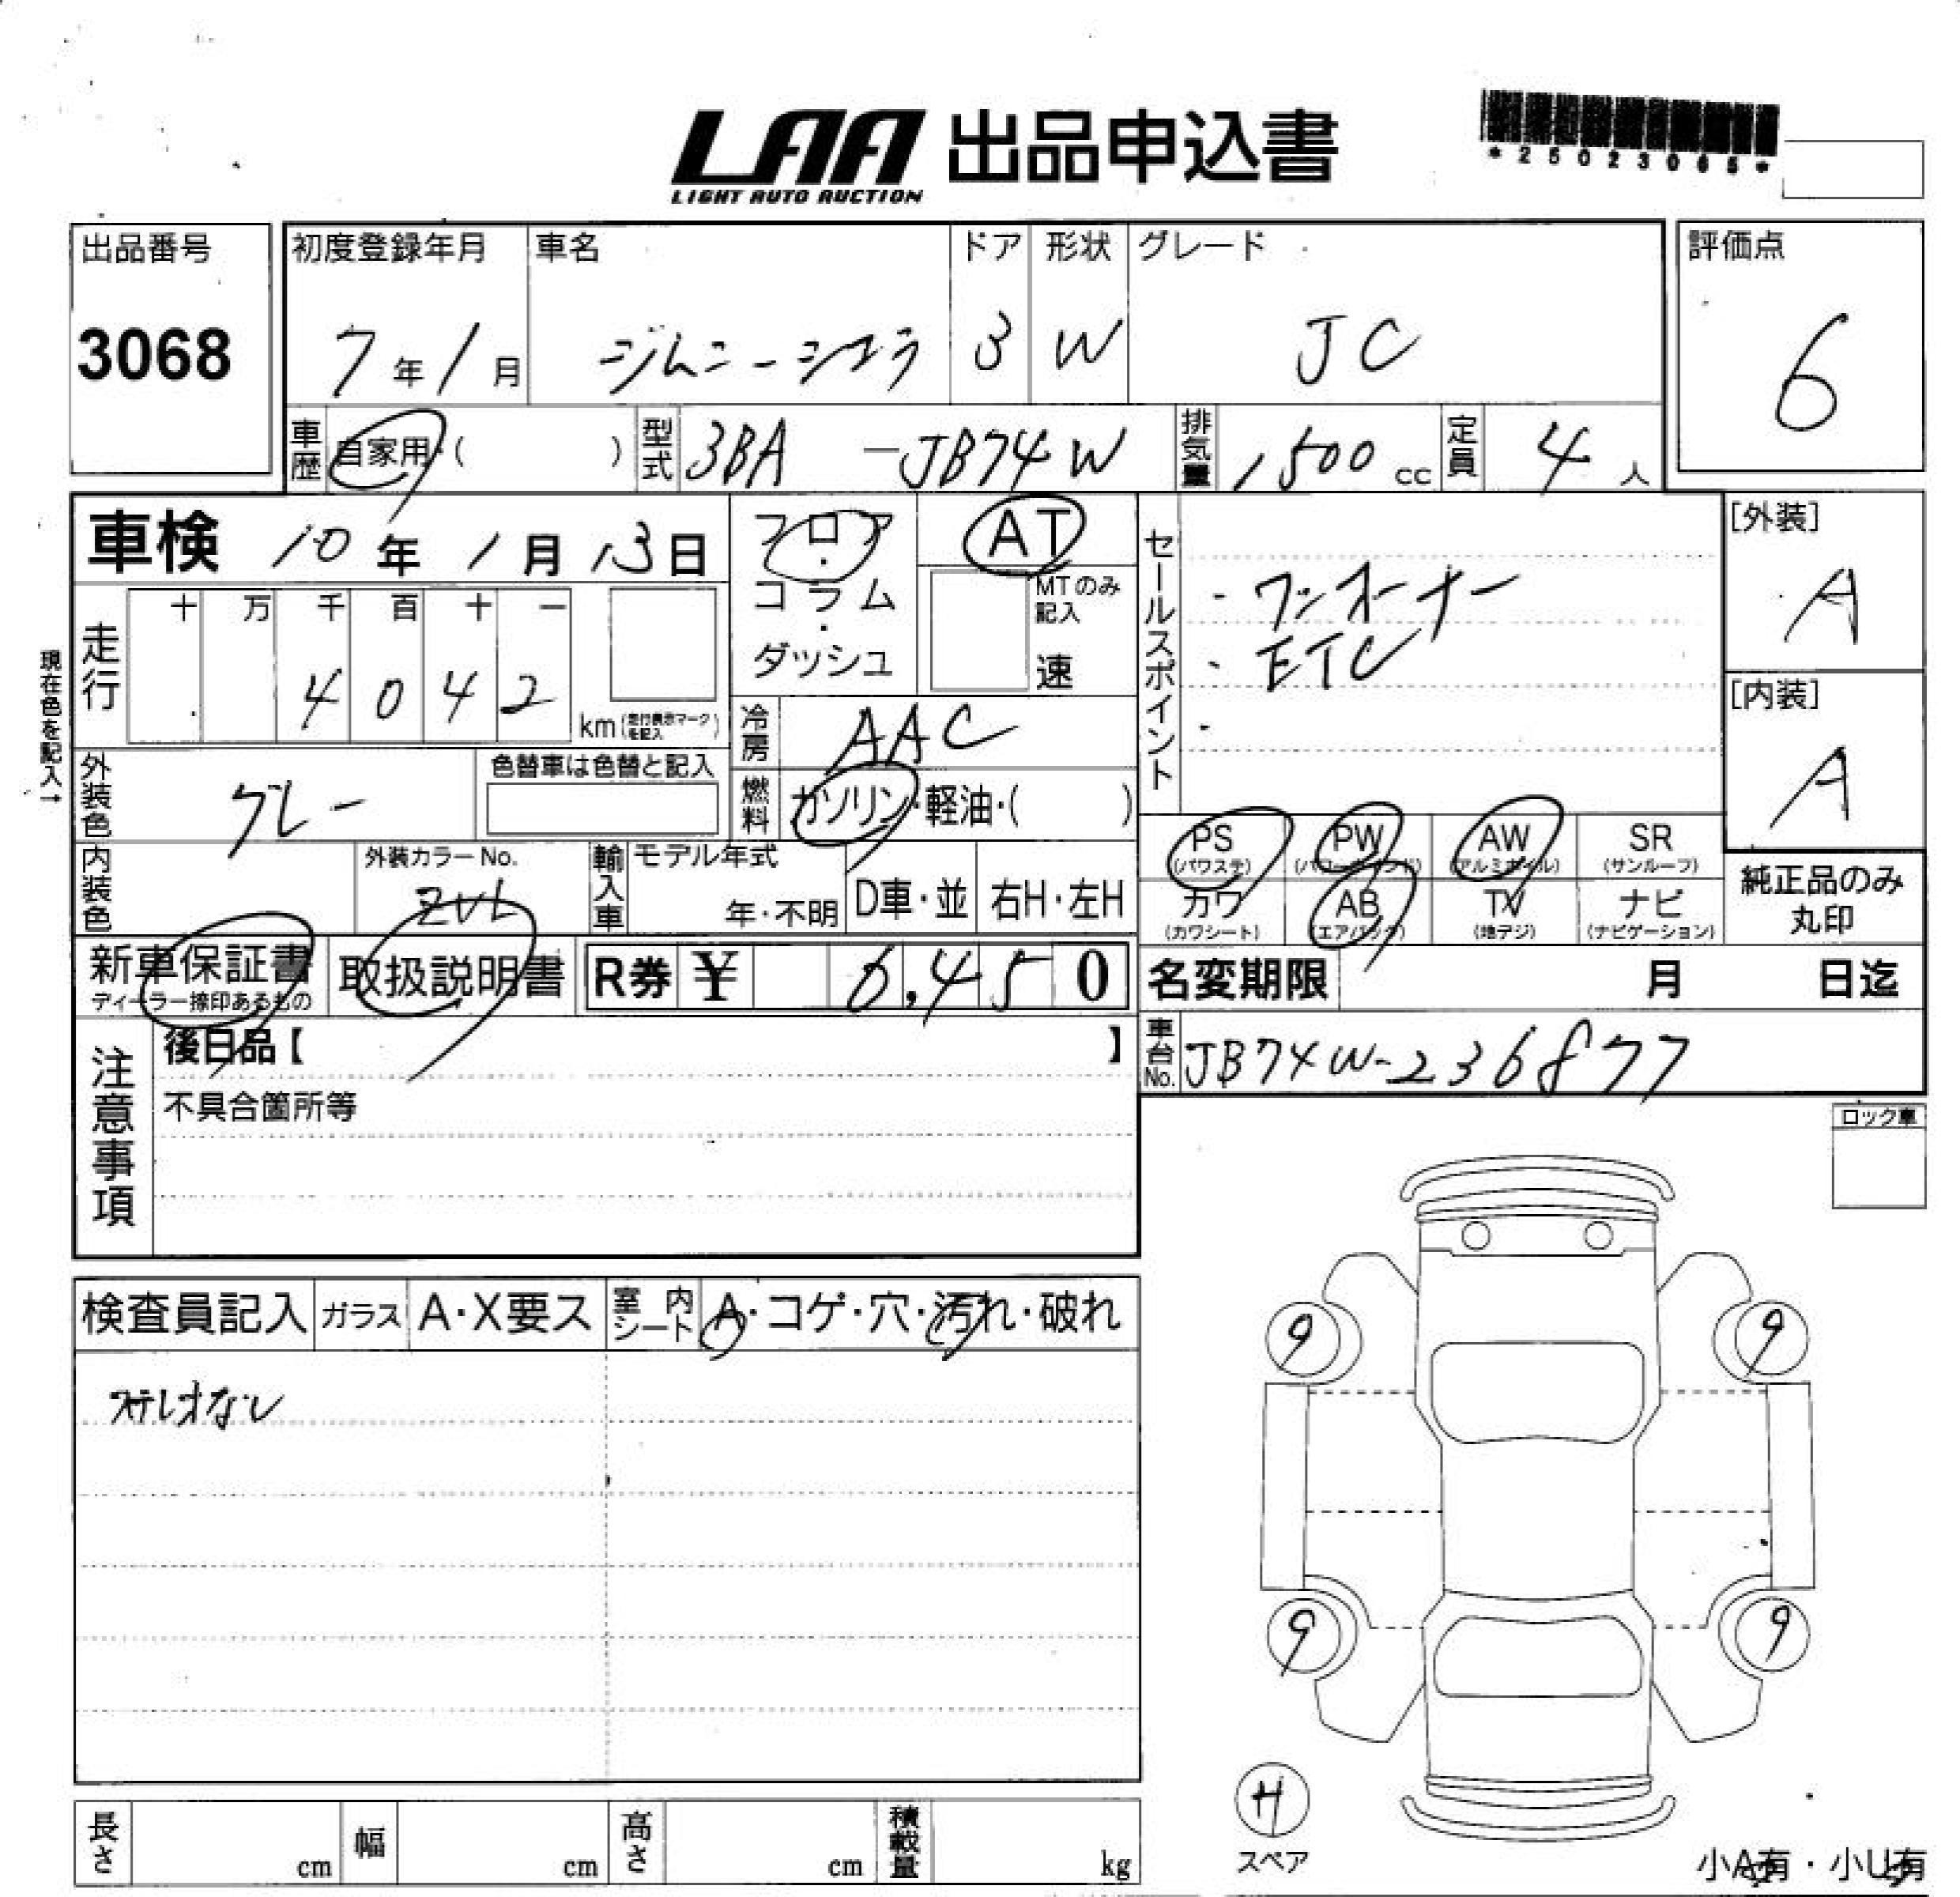 LAA 出品申込書
LIGHT AUTO AUCTION
*25023065*
出品番号
3068
初度登録年月
7年1月
車名
ジムニーシエラ
ドア
3
形状
W
グレード
JC
評価点
6
車歴
自家用・( )
型式
3BA -JB74W
排気量
1500 cc
定員
4人
車検 10年1月13日
フロア・コラム・ダッシュ
AT
MTのみ記入
速
走行
十 万 千 百 十 一
4 0 4 2
km(走行表示マークを記入)
現在色を記入→
冷房
AAC
燃料
ガソリン・軽油・( )
外装色
グレー
色替車は色替と記入
内装色
外装カラーNo.
ZVL
輸入車
モデル年式
年・不明
D車・並
右H・左H
セールスポイント
・ワンオーナー
・ETC
・
[外装]
A
[内装]
A
PS
(パワステ)
PW
(パワーウインド)
AW
(アルミホイル)
SR
(サンルーフ)
カワ
(カワシート)
AB
(エアバック)
TV
(地デジ)
ナビ
(ナビゲーション)
純正品のみ
丸印
新車保証書
ディーラー捺印あるもの
取扱説明書
R券 ¥ 6,450
名変期限 月 日迄
車台No.
JB74W-236877
注意事項
後日品【 】
不具合箇所等
ロック車
検査員記入
ガラス
A・X要ス
室内シート
A・コゲ・穴・汚れ・破れ
9
9
9
9
H
スペア
長さ cm
幅 cm
高さ cm
積載量 kg
小A有・小U有